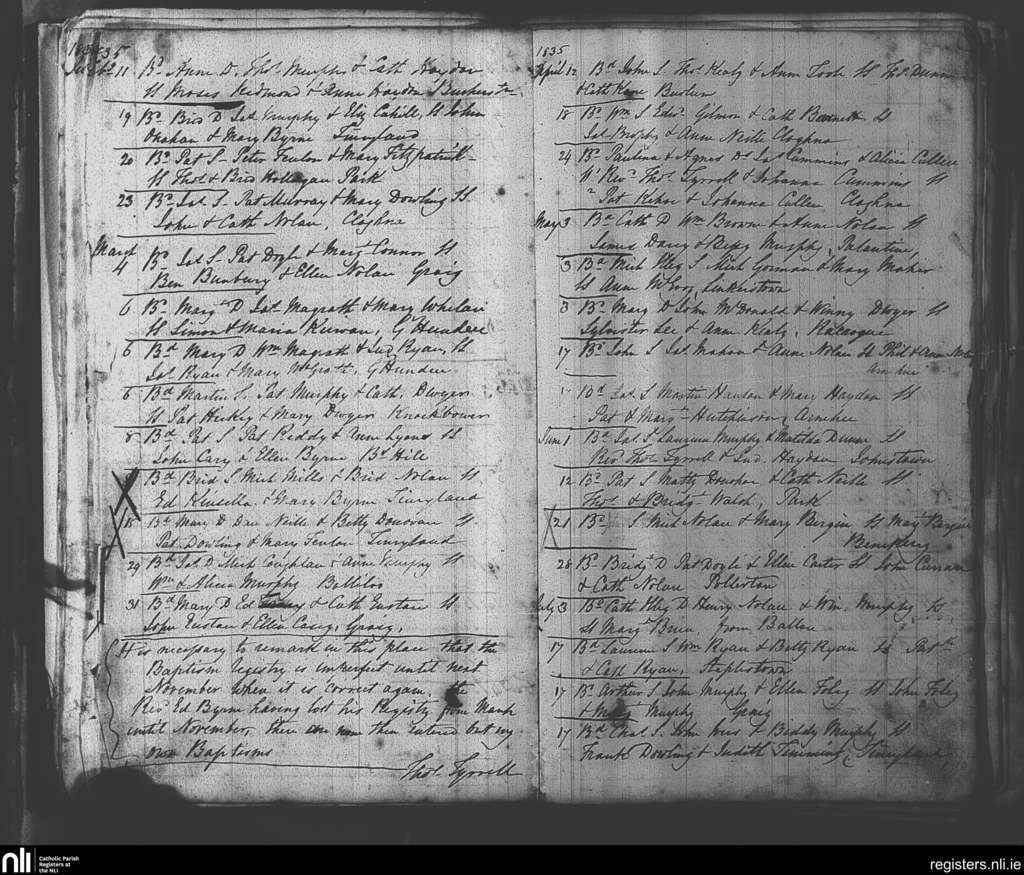 1835
11 Bd Anne D. Thos Murphy & Cath Haydon
St Moses Redmond & Anne Haydon
19 Bd Brid D Jas Murphy & Eliz Cahill, St John
& Mary Byrne Tinryland
20 Bd Pat S. Peter Fenlon & Mary Fitzpatrick
St Thos & Brid Park
23 Bd Jas S. Pat Murray & Mary Dowling St
John & Cath Nolan, Cloghna
March
4 Bd Jas S. Pat Doyle & Margt Connor St
Ben Bunbury & Ellen Nolan Graig
6 Bd Margt D Jas Magrath & Mary Whelan
St Simon & Maria Kirwan, G Hunden
6 Bd Mary D Wm Magrath & Jud Ryan, St
Jas Ryan & Mary McGrath, G Hunden
6 Bd Martin S. Pat Murphy & Cath. Dwyer
St Pat Hickey & Mary Dwyer Knockbower
8 Bd Pat S Pat Reddy & Anne Lyons St
John Cary & Ellen Byrne Bs Hill
Bd Brid S Mich Mills & Brid Nolan St
Ed Kinsella & Mary Byrne Tinryland
15 Bd Mary D Dan Neill & Betty Donovan St
Pat Dowling & Mary Fenlon Tinryland
29 Bd D Mich Coughlan & Anne Murphy St
Wm & Alicia Murphy
31 Bd Mary D Ed & Cath Eustace St
John Eustace & Ellen Casey, Graig.
It is necessary to remark in this place that the
Baptism registry is imperfect until next
November when it is correct again, the
Revd Ed Byrne having lost his Registry from March
until November, there are none then entered but my
own Baptisms
Thos. Tyrrell
1835
April 12 Bd John S Thos Kealy & Anne Toole St Thos Dunne
& Cath Kane Burton
18 Bd Wm S Edwd Gilmon & Cath Barnett St
Jas Murphy & Anne Neille Cloghna
24 Bd Paulina & Agnes Ds Jas Cummins & Alicia Cullen
Revd Thos Tyrrell & Johanna Cummins St
Pat Kehoe & Johanna Cullen Cloghna
May 3 Bd Cath D Wm Browne & Anne Nolan St
James Darcy & Murphy, Palantine,
3 Bd Mich S Mich Gorman & Mary Maher
St Anne McEvoy, Linkerstown
3 Bd Margt D John McDonald & Winny Dwyer St
Sylvester Lee & Anne Kealy,
17 Bd John S Jas Mahon & Anne Nolan St Phil & Anne Nolan
17 Bd Jas S Martin Hanlon & Mary Haydon St
Pat & Margt Hutchinson, Ar
June 1 Bd Jas S Laurence Murphy & Matilda Dunne St
Revd Thos Tyrrell & Jud. Haydon Johnstown
12 Bd Pat S Matty & Cath Neille St
Thos & Bridgt Walsh, Park
21 Bd S Mich Nolan & Mary Bergin St Margt Bergin
28 Bd Bridgt D Pat Doyle & Ellen Carter St John Curran
& Cath Nolan Pollerton
July 3 Bd Cath D Henry Nolan & Win. Murphy St
St Margt Brien from Ballon
17 Bd Laurence S Wm Ryan & Betty Ryan St Patk
& Cath Ryan, Staplestown
17 Bd Arthur S John Murphy & Ellen Foley St John Foley
& Margt Murphy Graig
17 Bd Chas S. John & Biddy Murphy St
Frank Dowling & Judith Timmins, Tinryland
nli
Catholic Parish
Registers at
the NLI
registers.nli.ie